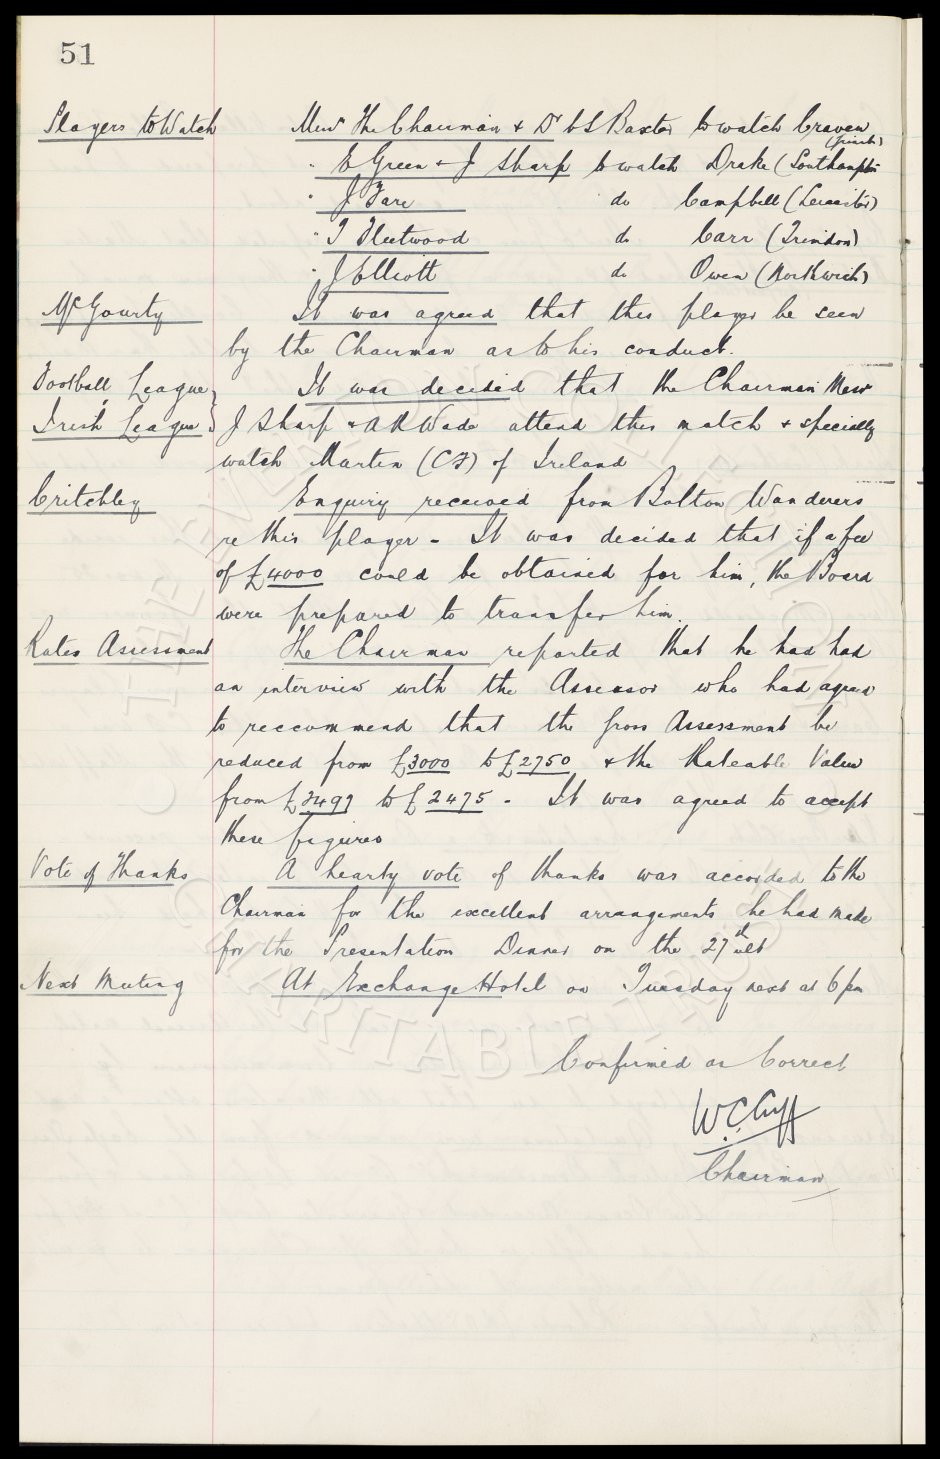 51
Players to Watch Messrs The Chairman & Dr C S Baxter to watch Craven
(Grimsby)
" E Green & J Sharp to watch Drake (Southampton
" J Fare do Campbell (Leicester)
" T Fleetwood do Carr (Trimdon)
" J Elliott do Owen (Northwich)
McGourty It was agreed that this player be seen
by the Chairman as to his conduct.
Football League It was decided that the Chairman Messrs
Irish League J Sharp & A R Wade attend this match & specially
watch Martin (CF) of Ireland
Critchley Enquiry received from Bolton Wanderers
re this player - It was decided that if a fee
of £4000 could be obtained for him, the Board
were prepared to transfer him.
Rates Assessment The Chairman reported that he has had
an interview with the Assessor who had agreed
to reccommend that the Gross Assessment be
reduced from £3000 to £2750 & the Rateable Value
from £2499 to £2475 - It was agreed to accept
these figures
Vote of Thanks A hearty vote of thanks was accorded to the
Chairman for the excellent arrangements he had made
for the Presentation Dinner on the 27th ult
Next Meeting At Exchange Hotel on Tuesday next at 6 pm
Confirmed as Correct
W.C. Cuff
Chairman
THE EVERTON COLLECTION
CHARITABLE TRUST